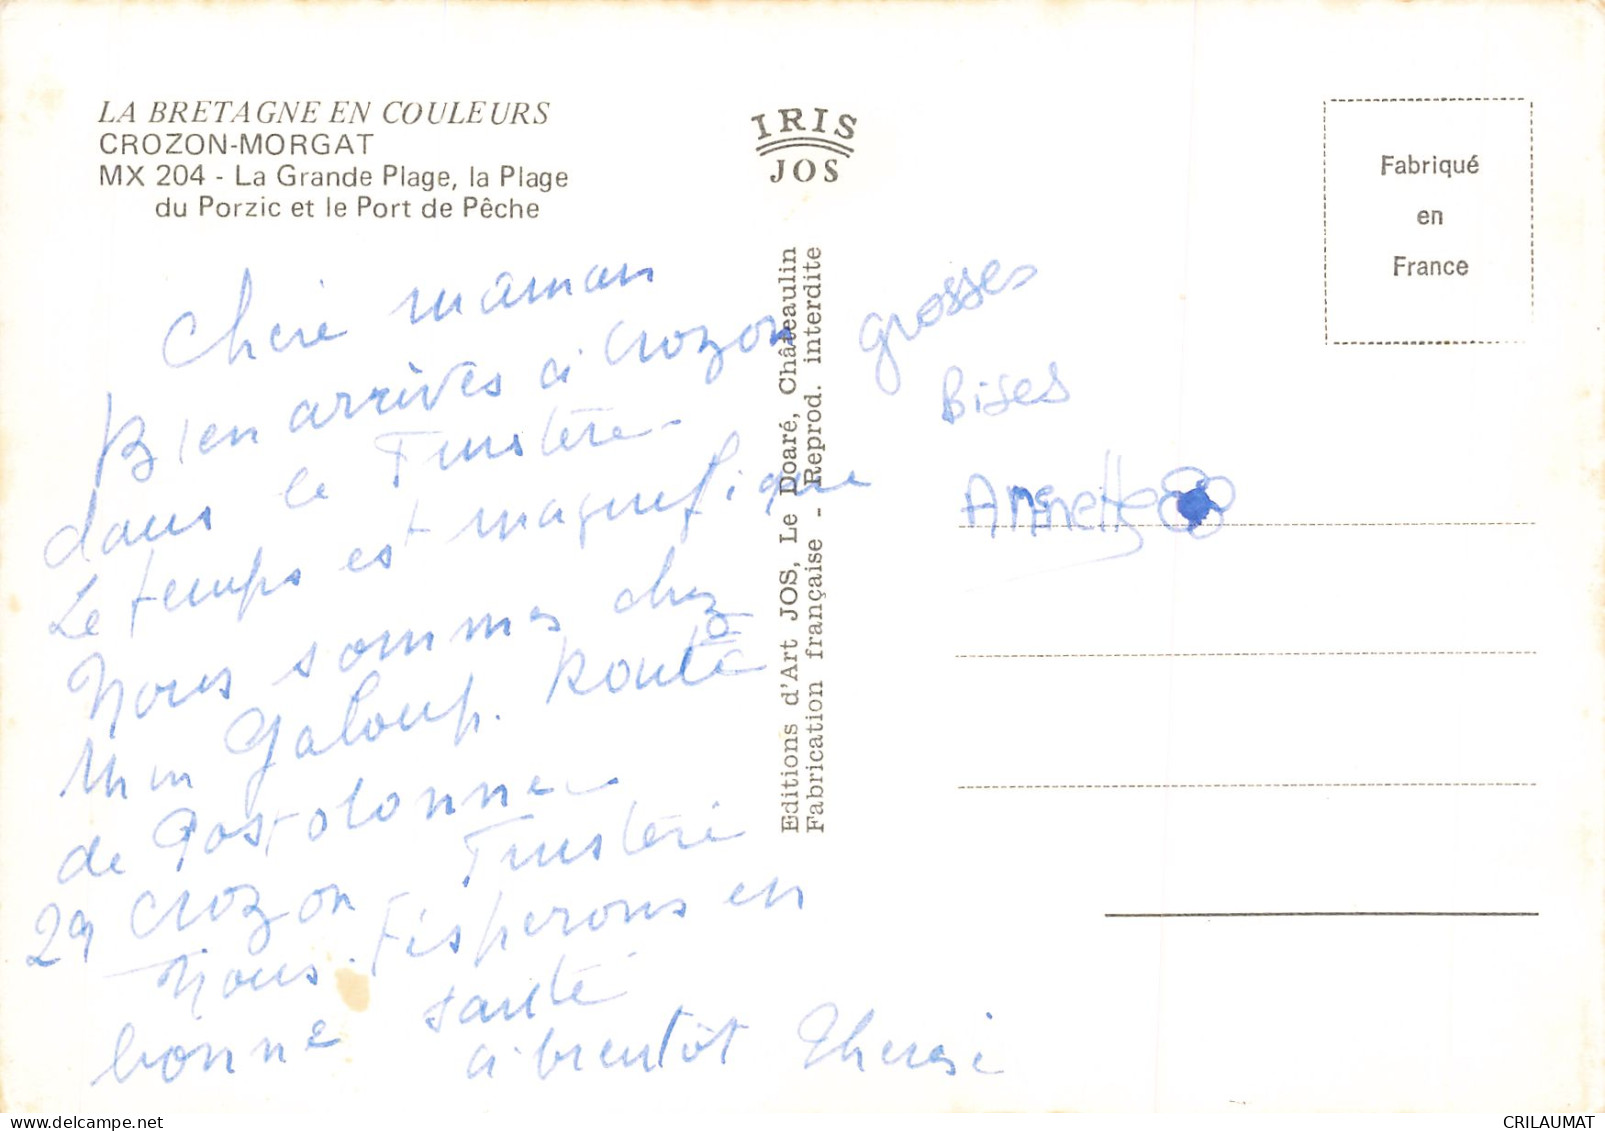 LA BRETAGNE EN COULEURS
CROZON-MORGAT
MX 204 - La Grande Plage, la Plage
du Porzic et le Port de Pêche
IRIS
JOS
Fabriqué
en
France
Editions d'Art JOS, Le Doaré, Châteaulin
Fabrication française - Reprod. interdite
Chère maman
Bien arrivés à Crozon
dans le Finistère
Le temps est magnifique
Nous sommes chez
Galoup. Route
de Postolonnec
29 Crozon Finistère
Nous t'espérons en
bonne santé
à bientôt Therese
grosses
Bises
Annette
CRILAUMAT